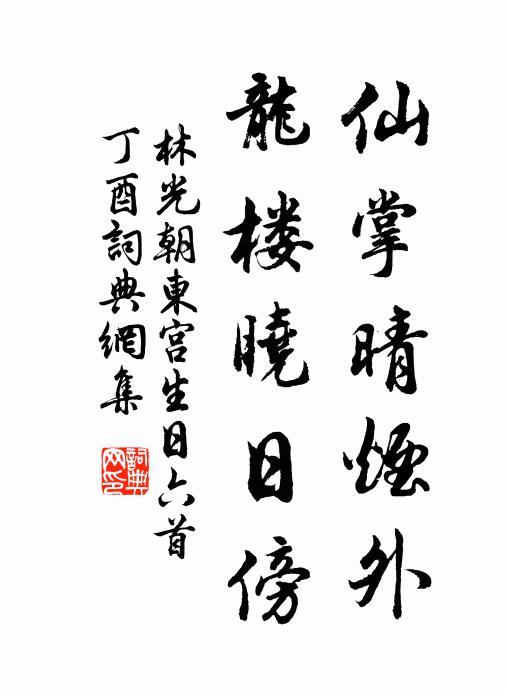 仙掌晴煙外
龍楼曉日傍
林光朝東宮生日六首
丁酉詞典網集
詞典网印